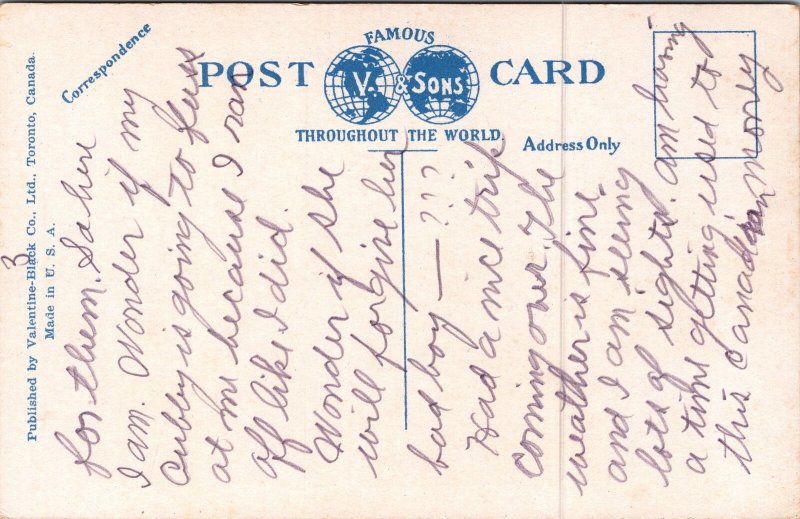 Correspondence
FAMOUS
POST CARD
V. & SONS
THROUGHOUT THE WORLD.
Address Only
Published by Valentine-Black Co., Ltd., Toronto, Canada.
Made in U. S. A.
3
for them. So here
I am. Wonder if my
Cubby is going to fuss
at me because I ran
off like I did.
Wonder if she
will forgive her
bad boy — ? ? ?
Had a nice trip
coming over. The
weather is fine
and I am seeing
lots of sights. am having
a time getting used to
this Canadian money